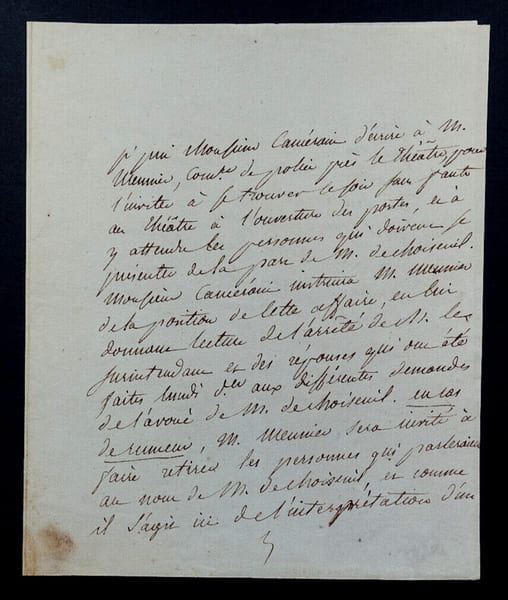 je prie Monsieur Camérani d'écrire à M.
Meunier, Comre de police près le Théâtre, pour
l'inviter à se trouver ce soir sans faute
au Théâtre à l'ouverture des portes, et à
y attendre les personnes qui doivent se
présenter de la part de M. de choiseuil.
Monsieur Camérani instruira M. Meunier
de la position de cette affaire, en lui
donnant lecture de l'arrêté de M. le
surintendant et des réponses qui ont été
faites lundi der aux différentes demandes
de l'avoué de M. de choiseuil. en cas
de rumeur, M. Meunier sera invité à
faire retirer les personnes qui parleraient
au nom de M. de choiseuil, et comme
il s'agit ici de l'interprétation d'un